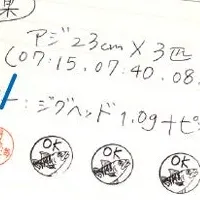 果
アジ 23cm × 3匹
(07:15. 07:40. 08.
ト:ジグヘッド 1.0g+ピ
OK
OK
OK